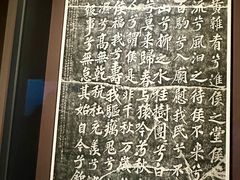 黃雜肴兮進侯之堂侯
流兮風汨之待侯不來兮
白駒兮入廟慰我民兮不
山兮柳之水桂樹團兮白
兮莫來歸春與猿吟兮秋
兮謂侯是非千秋万歲
侯福我兮壽我驅厲鬼兮
兮高無乾秔稌充羨兮
報事兮無怠其始自今兮欽